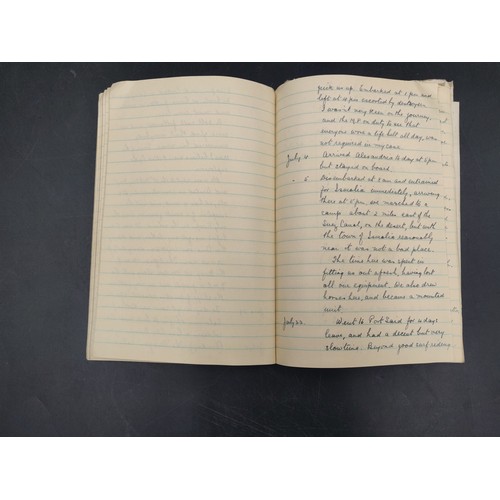 pick us up. Embarked at 5 pm and
left at 10 pm escorted by destroyer.
I wasn't very keen on the journey
and the on duty to see that
everyone wore a life belt all day, was
not required in my case.
July 4 Arrived Alexandria to day at 6 pm
but stayed on board.
" 5 Disembarked at 8 am and entrained
for Ismailia immediately, arriving
there at 5 pm and marched to a
camp about 2 miles east of the
Suez Canal, on the desert, but with
the town of Ismailia reasonably
near it was not a bad place.
The time here was spent in
fitting us out afresh, having lost
all our equipment. We also drew
horses here, and became a mounted
unit.
July 22. Went to Port Said for a days
leave, and had a decent but very
slow time. Enjoyed good surf riding